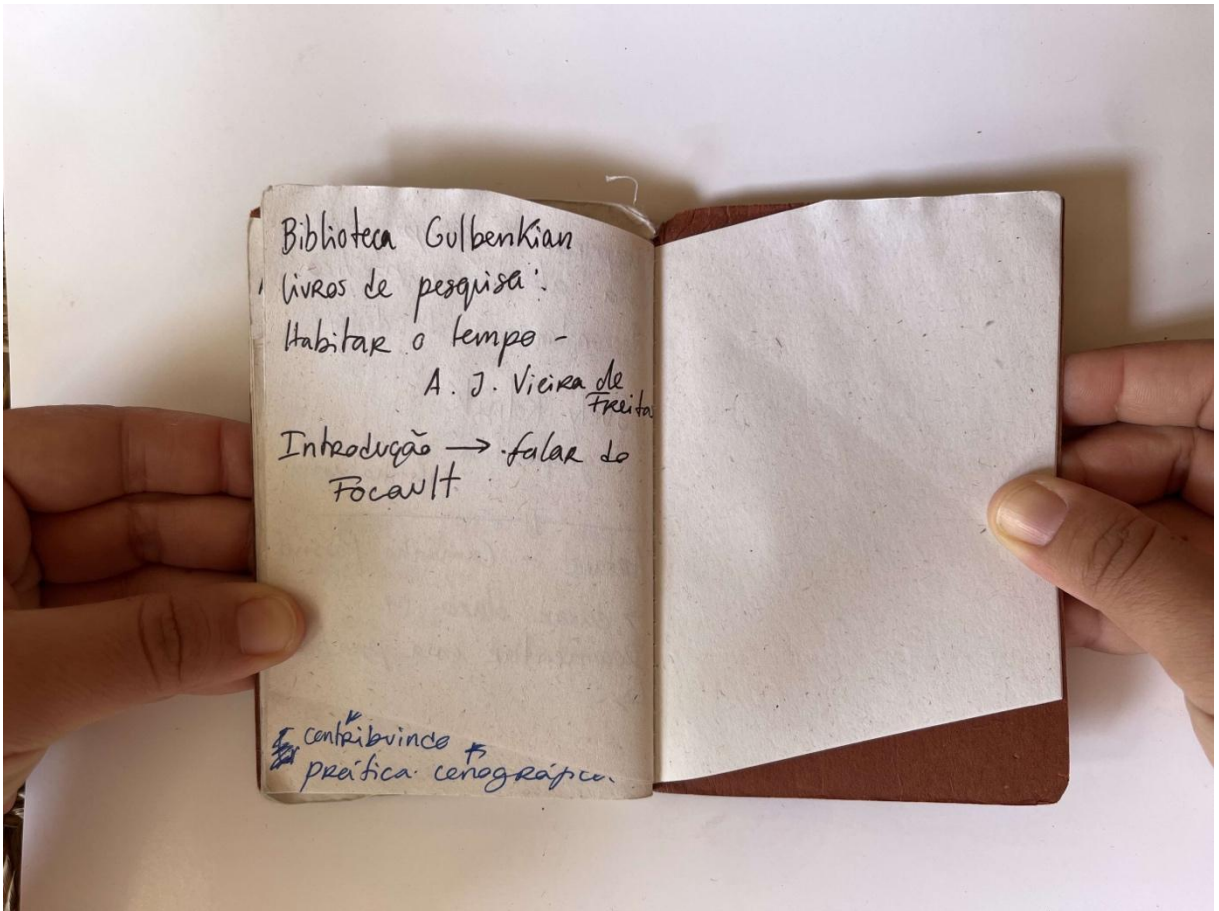 Biblioteca Gulbenkian
livros de pesquisa:
Habitar o tempo -
A. J. Vieira de
Freitas
Introdução → falar do
Focault
contribuindo
prática cenográfica.